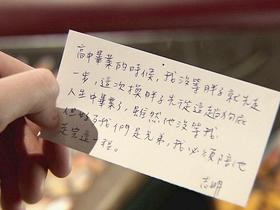 高中畢業的時候,我沒等胖子就先走
一步,這次換胖子先從這趟狗屁
人生中畢業了,雖然他沒等我,
但好歹我們是兄弟,我必須陪他
走完這一程。
志明